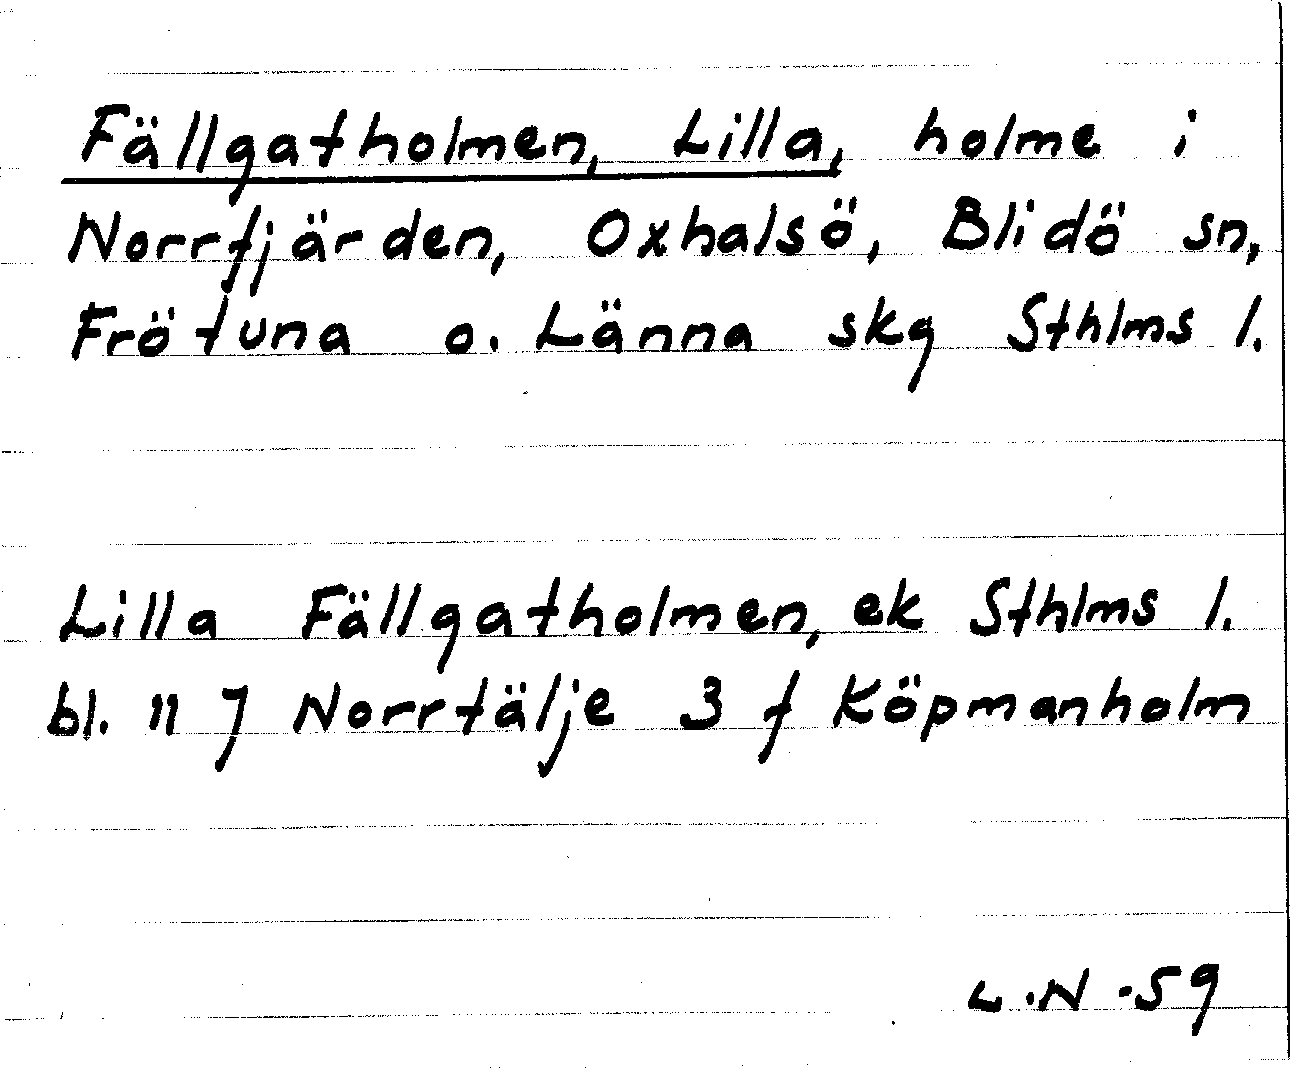 Fällgatholmen, Lilla, holme i
Norrfjärden, Oxhalsö, Blidö sn,
Frötuna o. Länna skg Sthlms l.
Lilla Fällgatholmen, ek Sthlms l.
bl. 11 J Norrtälje 3 f Köpmanholm
L.N -59